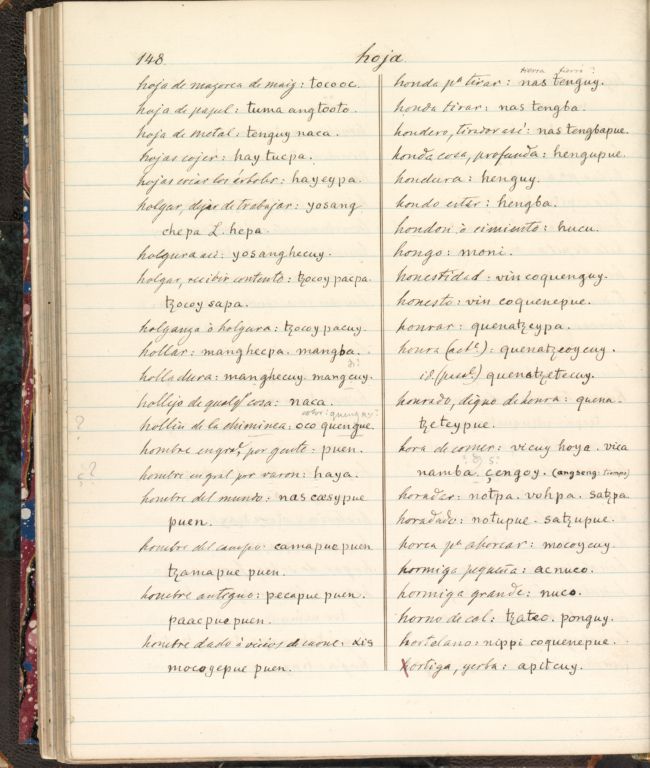 148
hoja
hoja de mazorca de maiz: tococ.
hoja de papel: tuma angtooto.
hoja de metal: tenguy naca.
hojas cojer: hay tucpa.
hojas criar los árboles: hayeypa.
holgar, dejar de trabajar: yosang
chepa L. hepa.
holgura asi: yosanghecuy.
holgar, recibir contento: tzocoy pacpa.
tzocoy sapa.
holganza ò holgura: tzocoy pacuy.
hollar: manghecpa. mangba.
holladura: manghecuy. mangcuy.
hollejo de qualqr cosa: naca.
hollin de la chiminea: oco quengue.
hombre engral, por gente: puen.
hombre engral por varon: haya.
hombre del mundo: nas cæsypue
puen.
hombre del campo: camapue puen
tzamapue puen.
hombre antiguo: pecapue puen.
paacpue puen.
hombre dado à vicios de carne: xis
mocoyepue puen.
tierra
honda pa tirar: nas tenguy.
honda tirar: nas tengba.
hondero, tirador asi: nas tengbapue.
honda cosa, profunda: hengupue.
hondura: henguy.
hondo estar: hengba.
hondon ò cimiento: hucu.
hongo: moni.
honestidad: vin coquenguy.
honesto: vin coquenepue.
honrar: quenatzeypa.
honra (acte): quenatzcoycuy.
id (pasl.) quenatzetecuy.
honrado, digno de honra: quena-
tzeteypue.
hora de comer: vicuy hoya. vica
namba. çengoy. (angseng: tiempo)
horader: notpa. vohpa. satzpa.
horadado: notupue. satzupue.
horca pa ahorcar: mocoycuy.
hormiga pequeña: acnuco.
hormiga grande: nuco.
horno de cal: tzateo. ponguy.
hortelano: nippi coquenepue.
hortiga, yerba: apitcuy.